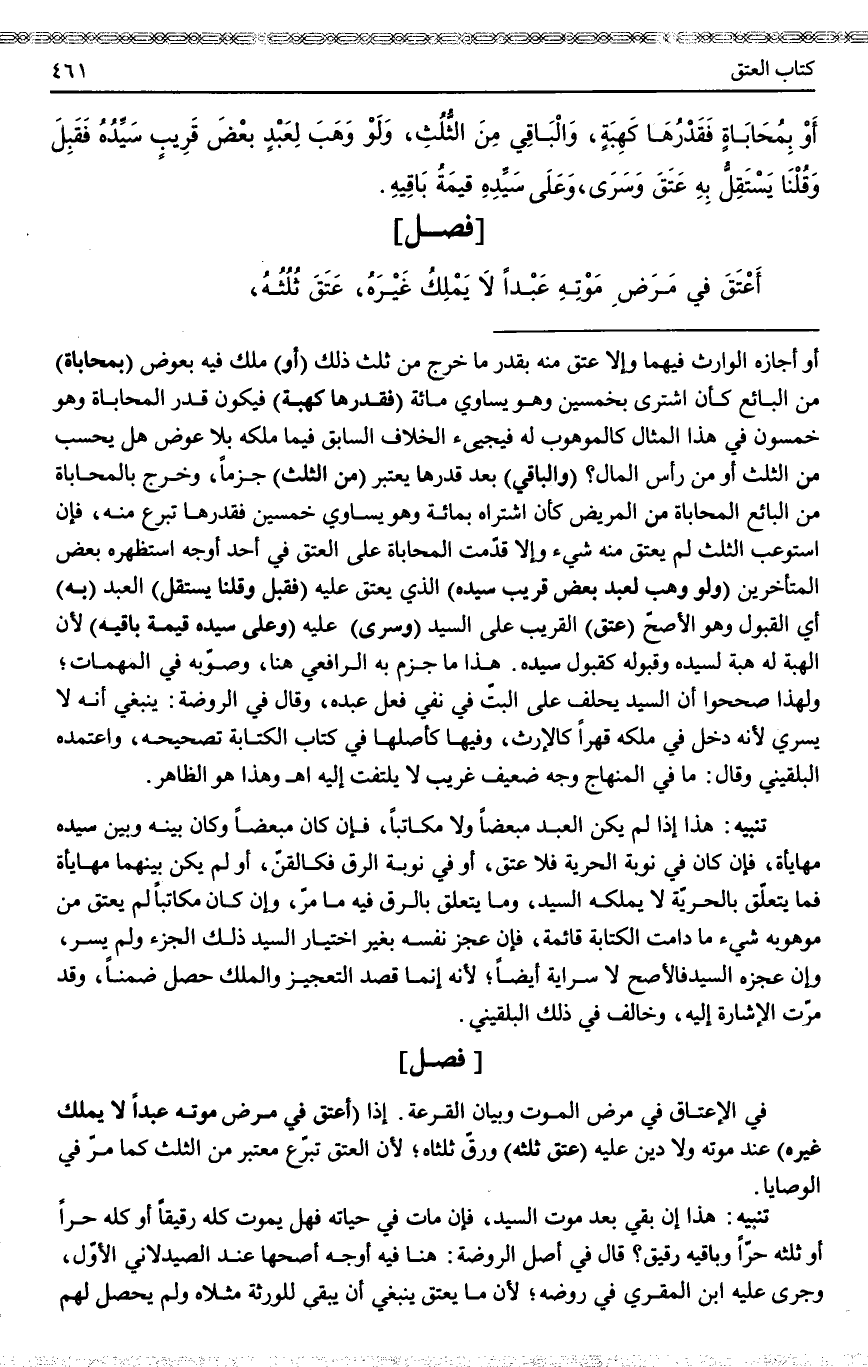 كتاب العتق ٤٦١
أَوْ بِمُحَابَاةٍ فَقَدْرُهَا كَهِبَةٍ، وَالْبَاقِي مِنَ الثُّلُثِ، وَلَوْ وَهَبَ لِعَبْدٍ بعْضَ قَرِيبٍ سَيِّدُهُ فَقَبِلَ
وَقُلْنَا يَسْتَقِلُّ بِهِ عَتَقَ وَسَرَى، وَعَلَى سَيِّدِهِ قيمَةُ بَاقِيهِ.
[فصل]
أَعْتَقَ في مَرَضِ مَوْتِهِ عَبْداً لَا يَمْلِكُ غَيْرَهُ، عَتَقَ ثُلُثُهُ،
أو أجازه الوارث فيهما وإلا عتق منه بقدر ما خرج من ثلث ذلك (أو) ملك فيه بعوض (بمحاباة)
من البائع كأن اشترى بخمسين وهو يساوي مائة (فقدرها كهبة) فيكون قدر المحاباة وهو
خمسون في هذا المثال كالموهوب له فيجيء الخلاف السابق فيما ملكه بلا عوض هل يحسب
من الثلث أو من رأس المال؟ (والباقي) بعد قدرها يعتبر (من الثلث) جزماً، وخرج بالمحاباة
من البائع المحاباة من المريض كأن اشتراه بمائة وهو يساوي خمسين فقدرها تبرع منه، فإن
استوعب الثلث لم يعتق منه شيء وإلا قدّمت المحاباة على العتق في أحد أوجه استظهره بعض
المتأخرين (ولو وهب لعبد بعض قريب سيده) الذي يعتق عليه (فقبل وقلنا يستقل) العبد (به)
أي القبول وهو الأصحّ (عتق) القريب على السيد (وسرى) عليه (وعلى سيده قيمة باقيه) لأن
الهبة له هبة لسيده وقبوله كقبول سيده. هذا ما جزم به الرافعي هنا، وصوّبه في المهمات؛
ولهذا صححوا أن السيد يحلف على البتّ في نفي فعل عبده، وقال في الروضة: ينبغي أنه لا
يسري لأنه دخل في ملكه قهراً كالإرث، وفيها كأصلها في كتاب الكتابة تصحيحه، واعتمده
البلقيني وقال: ما في المنهاج وجه ضعيف غريب لا يلتفت إليه اهـ وهذا هو الظاهر.
تنبيه: هذا إذا لم يكن العبد مبعضاً ولا مكاتباً، فإن كان مبعضاً وكان بينه وبين سيده
مهايأة، فإن كان في نوبة الحرية فلا عتق، أو في نوبة الرق فكالقنّ، أو لم يكن بينهما مهايأة
فما يتعلّق بالحريّة لا يملكه السيد، وما يتعلق بالرق فيه ما مرّ، وإن كان مكاتباً لم يعتق من
موهوبه شيء ما دامت الكتابة قائمة، فإن عجز نفسه بغير اختيار السيد ذلك الجزء ولم يسر،
وإن عجزه السيدفالأصح لا سراية أيضاً؛ لأنه إنما قصد التعجيز والملك حصل ضمناً، وقد
مرّت الإشارة إليه، وخالف في ذلك البلقيني.
[فصل]
في الإعتاق في مرض الموت وبيان القرعة. إذا (أعتق في مرض موته عبداً لا يملك
غيره) عند موته ولا دين عليه (عتق ثلثه) ورقّ ثلثاه؛ لأن العتق تبرّع معتبر من الثلث كما مرّ في
الوصايا.
تنبيه: هذا إن بقي بعد موت السيد، فإن مات في حياته فهل يموت كله رقيقاً أو كله حراً
أو ثلثه حرّاً وباقيه رقيق؟ قال في أصل الروضة: هنا فيه أوجه أصحها عند الصيدلاني الأوّل،
وجرى عليه ابن المقري في روضه؛ لأن ما يعتق ينبغي أن يبقي للورثة مثلاه ولم يحصل لهم